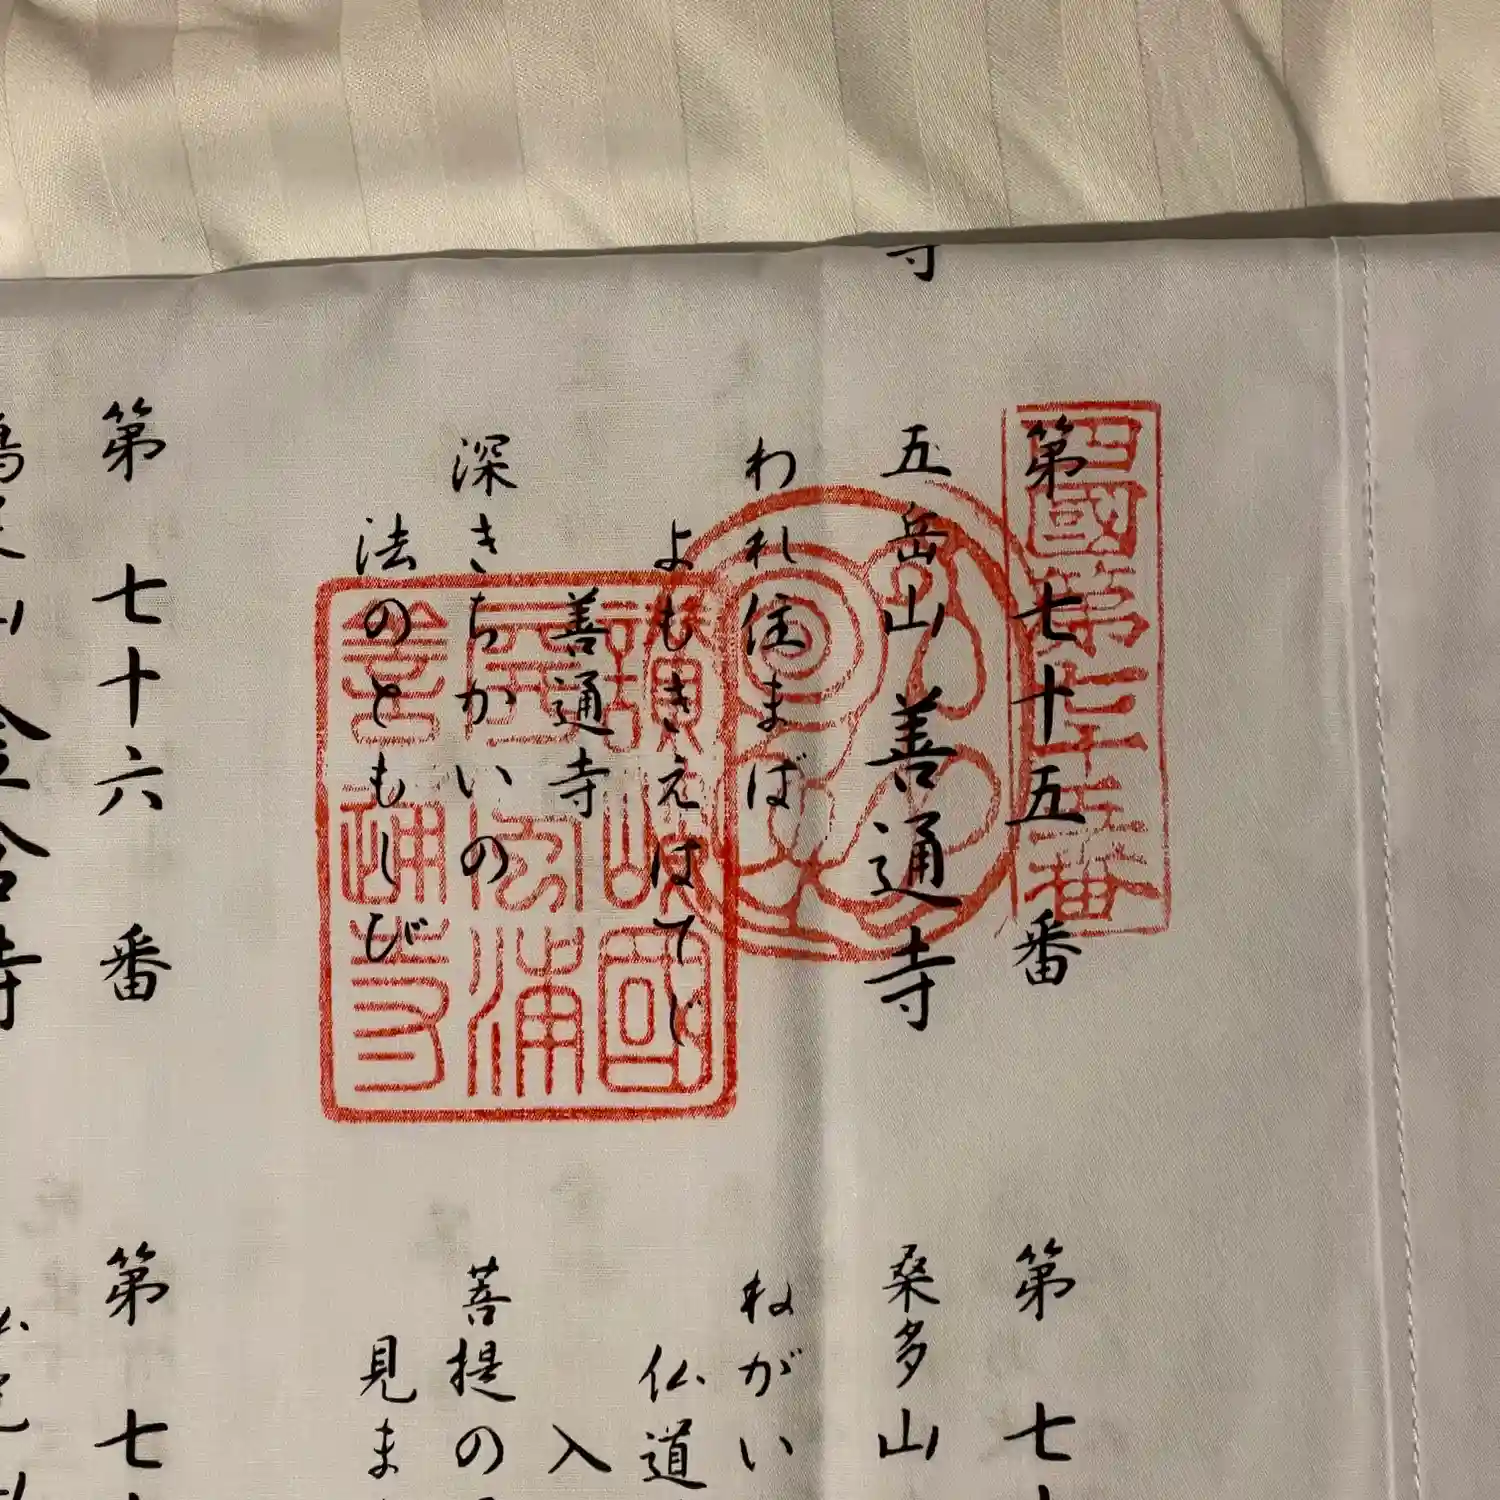 寺
第七十五番
五岳山 善通寺
われ住まば
よもきえはてじ
善通寺
深きちかいの
法のともしび
第七十六番
金倉寺
四國第七十五番
讃岐國
屏風浦
善通寺
第七
桑多山
ねがい
仏道
入
菩提の
見ま
第七